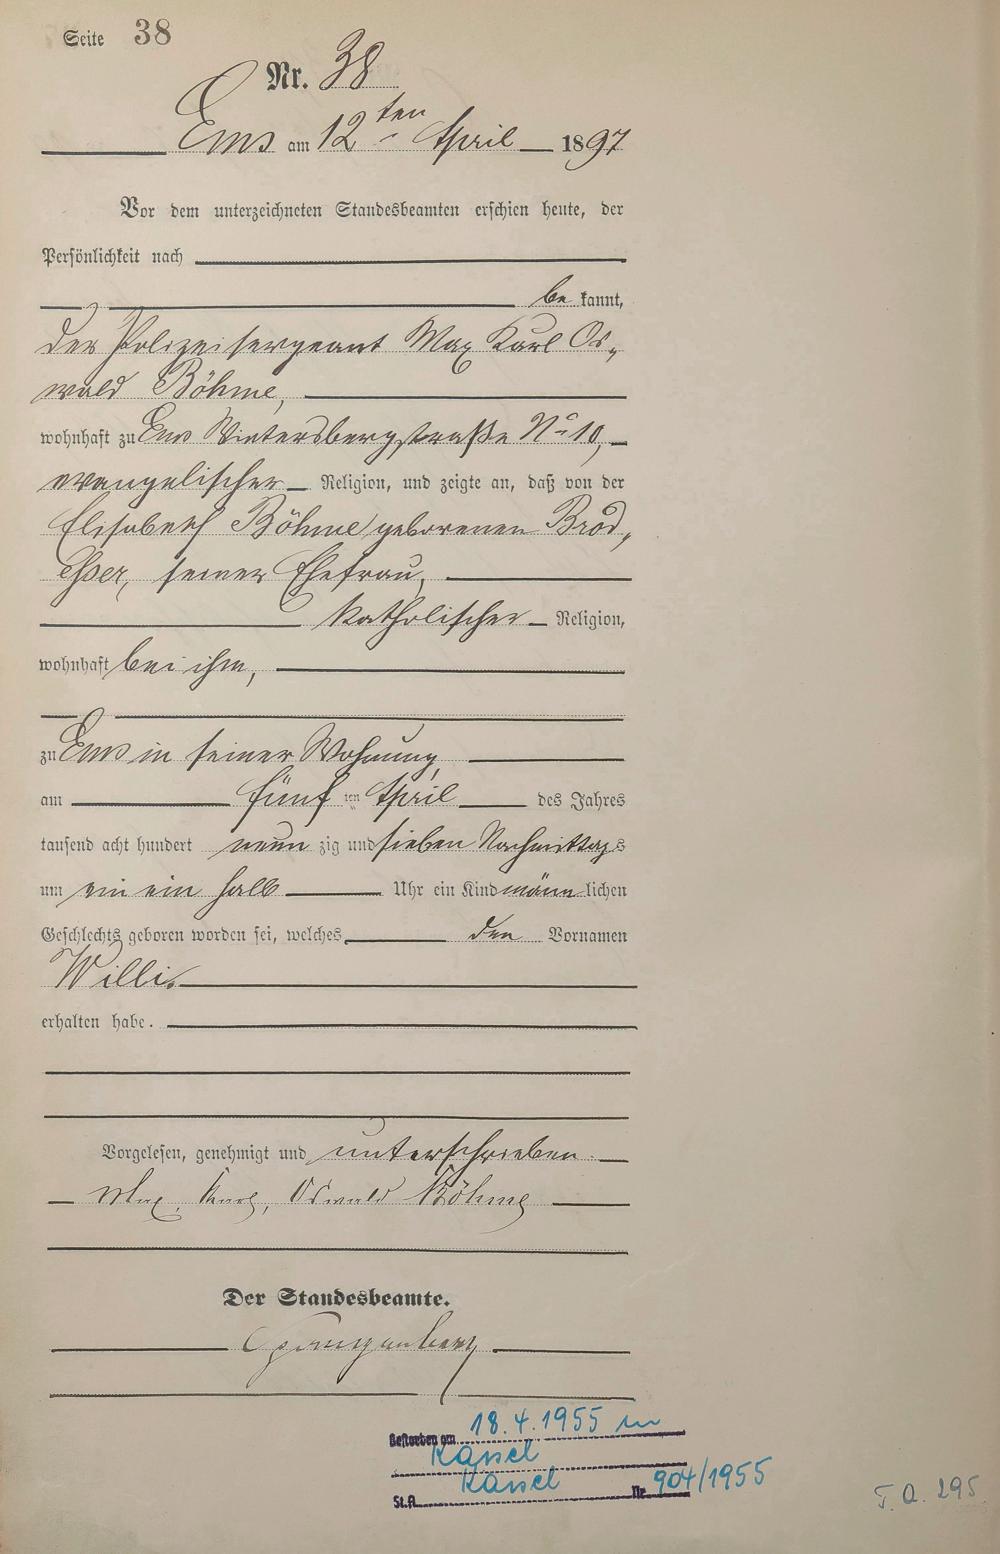 Seite 38
Nr. 38
Ems am 12ten April 1897
Vor dem unterzeichneten Standesbeamten erschien heute, der
Persönlichkeit nach
be kannt,
der Polizeisergeant Max Karl Os„
wald Böhme,
wohnhaft zu Ems Wintersbergstraße No 10,
evangelischer Religion, und zeigte an, daß von der
Elisabeth Böhme geborenen Brod„
eßer, seiner Ehefrau,
katholischer Religion,
wohnhaft bei ihm,
zu Ems in seiner Wohnung,
am fünf ten April des Jahres
tausend acht hundert neun zig und sieben Nachmittags
um ein ein halb Uhr ein Kind männlichen
Geschlechts geboren worden sei, welches den Vornamen
Willi
erhalten habe.
Vorgelesen, genehmigt und unterschrieben.
Max, Karl, Oswald Böhme
Der Standesbeamte.
Gestorben am 18.4.1955 in
Kassel
St.A. Kassel Nr. 904/1955
T. A. 295